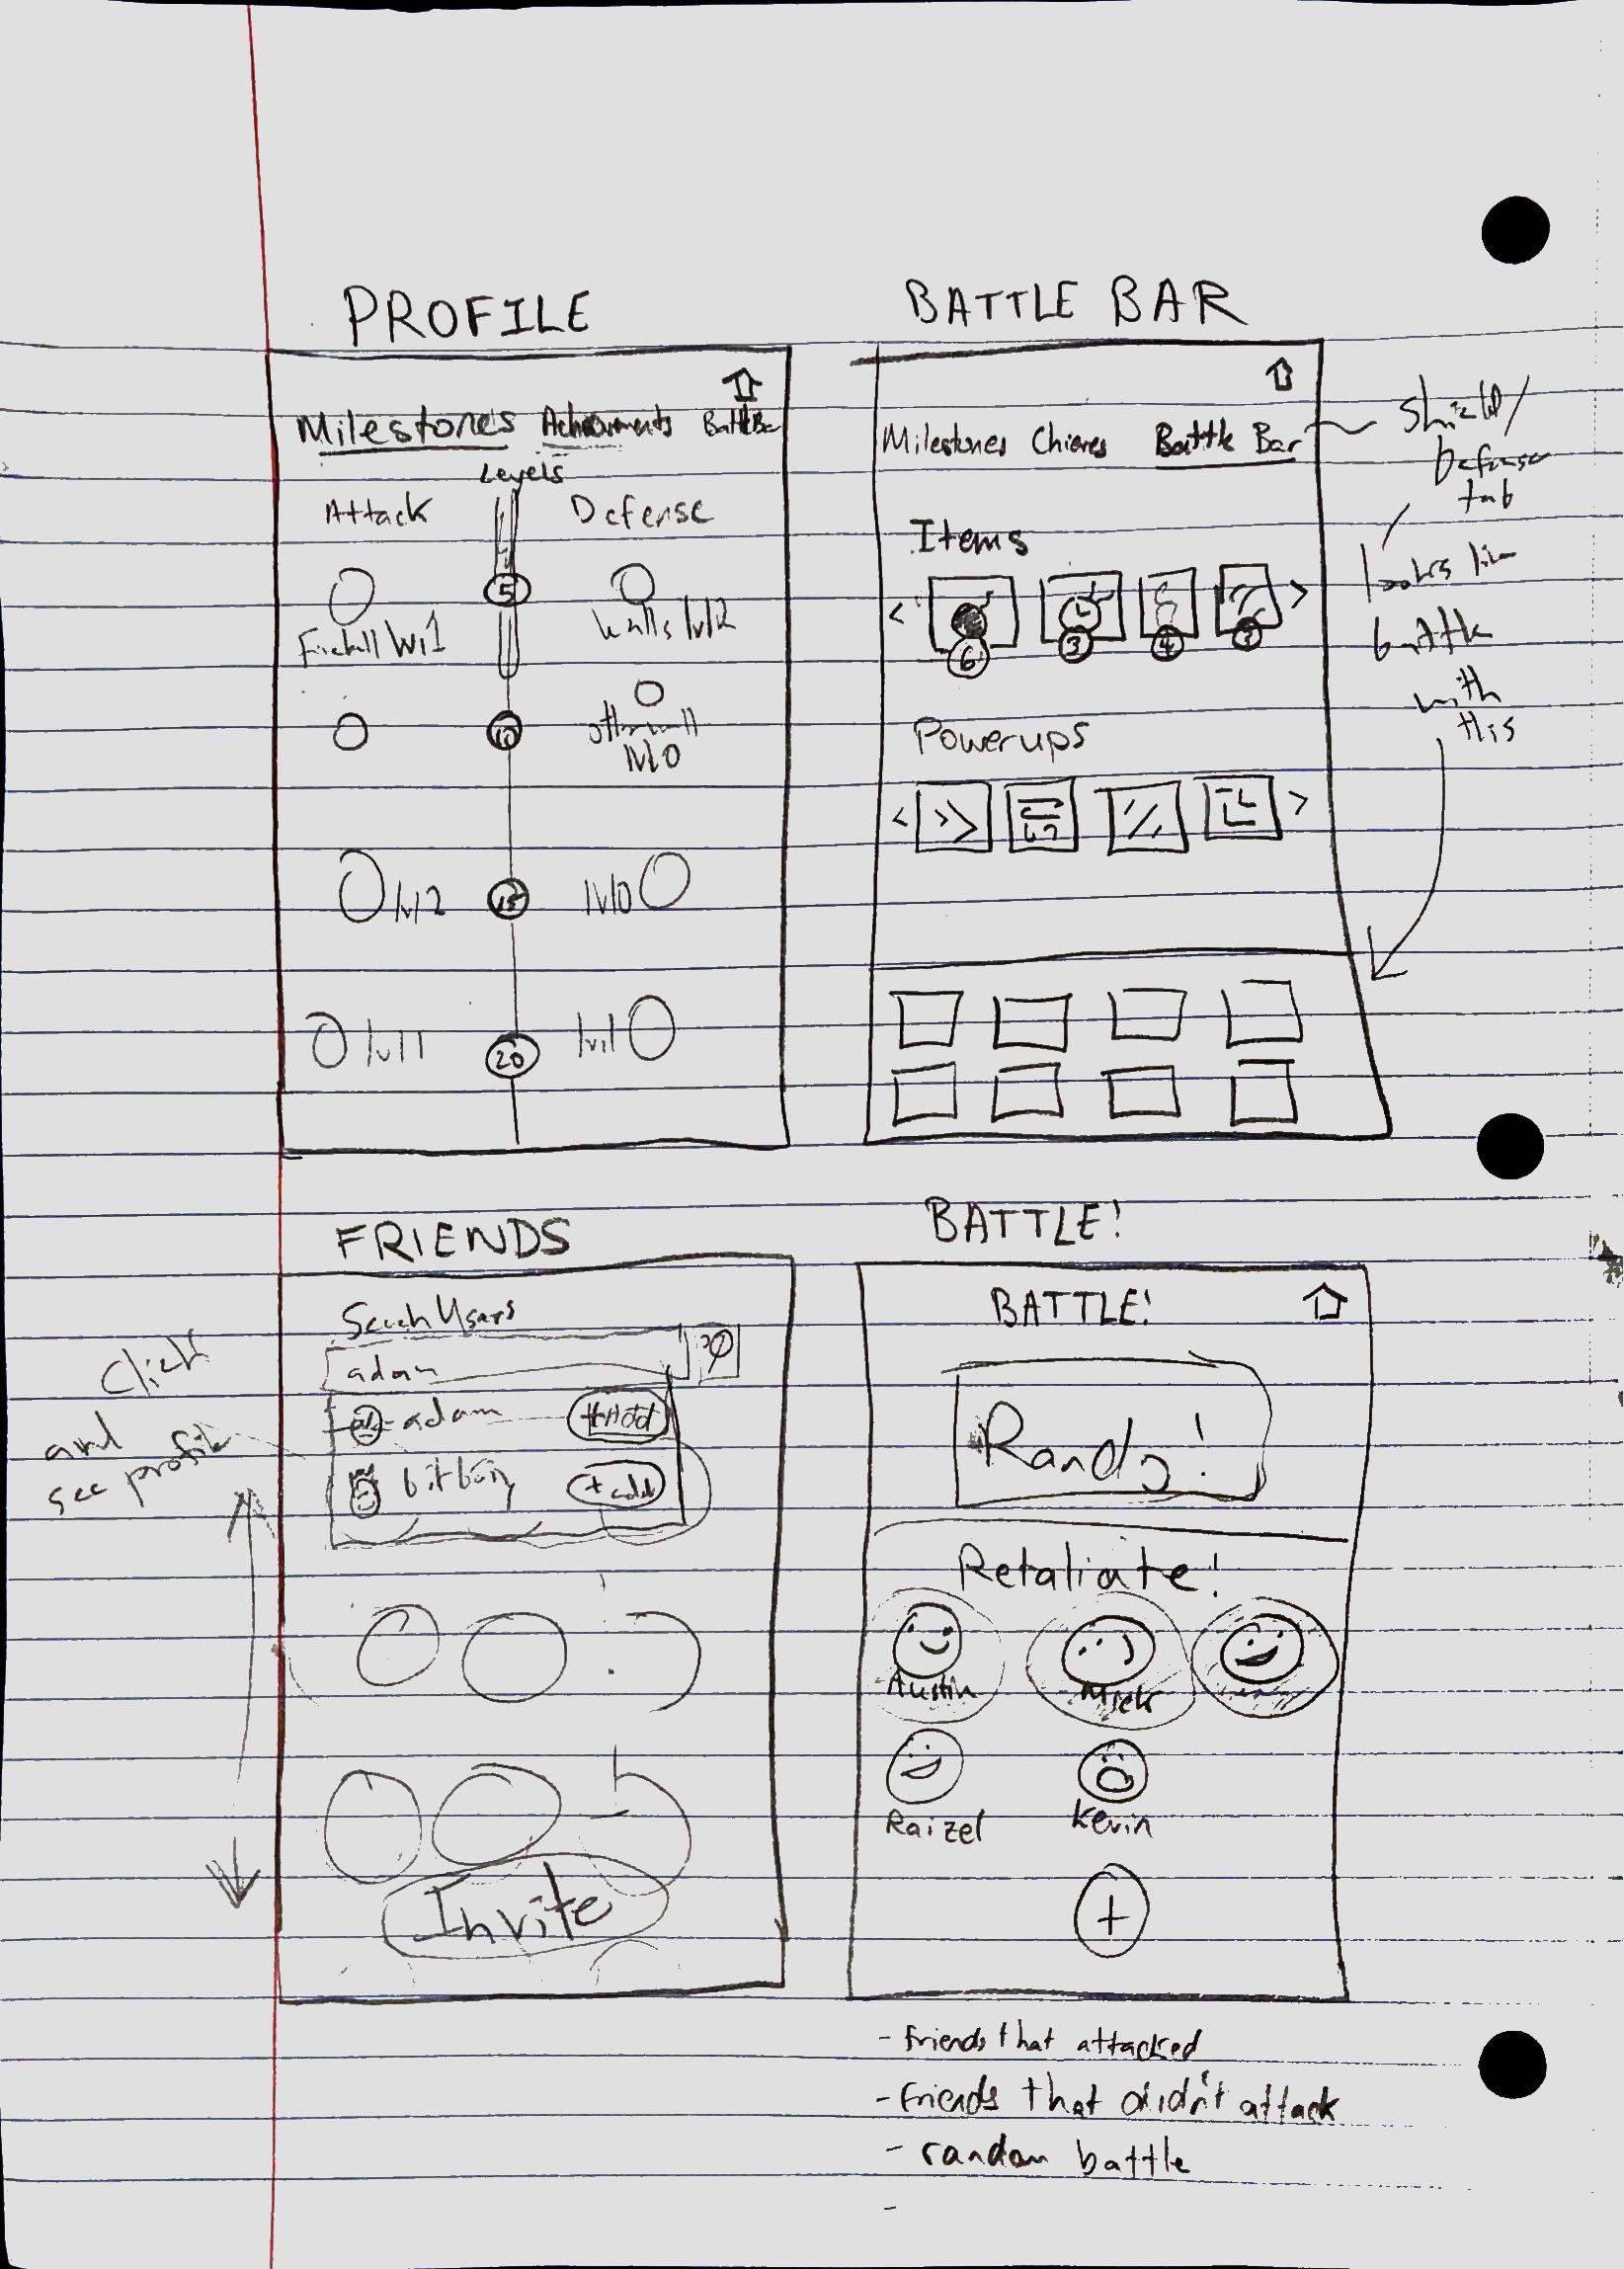 PROFILE
Milestones Achievements Battle Bar
Levels
Attack
Defense
5
Fireball lvl1
Walls lvl2
10
lvl0
lvl2
15
lvl0
lvl1
20
lvl1
BATTLE BAR
Milestones Chieves Battle Bar
Shield/
Defense
tab
looks like
battle
with
this
Items
< >
6 3 4
Powerups
< >> >
FRIENDS
Search Users
adam
adam +Add
+add
Invite
Click
and
see profile
BATTLE!
BATTLE!
Randy!
Retaliate!
Austin
Raizel Kevin
+
- friends that attacked
- friends that didn't attack
- random battle
-